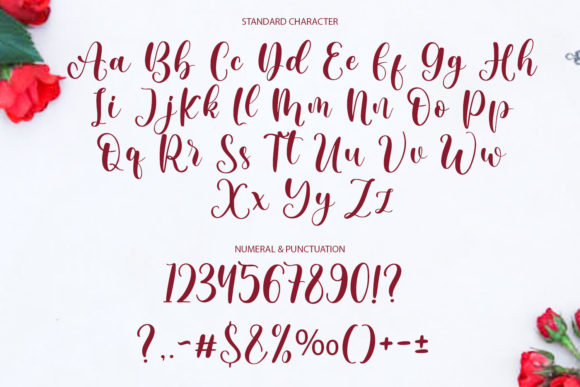 STANDARD CHARACTER
Aa Bb Cc Dd Ee Ff Gg Hh
Ii Jj Kk Ll Mm Nn Oo Pp
Qq Rr Ss Tt Uu Vv Ww
Xx Yy Zz
NUMERAL & PUNCTUATION
1234567890!?
?,.~#$&%‰()+-±